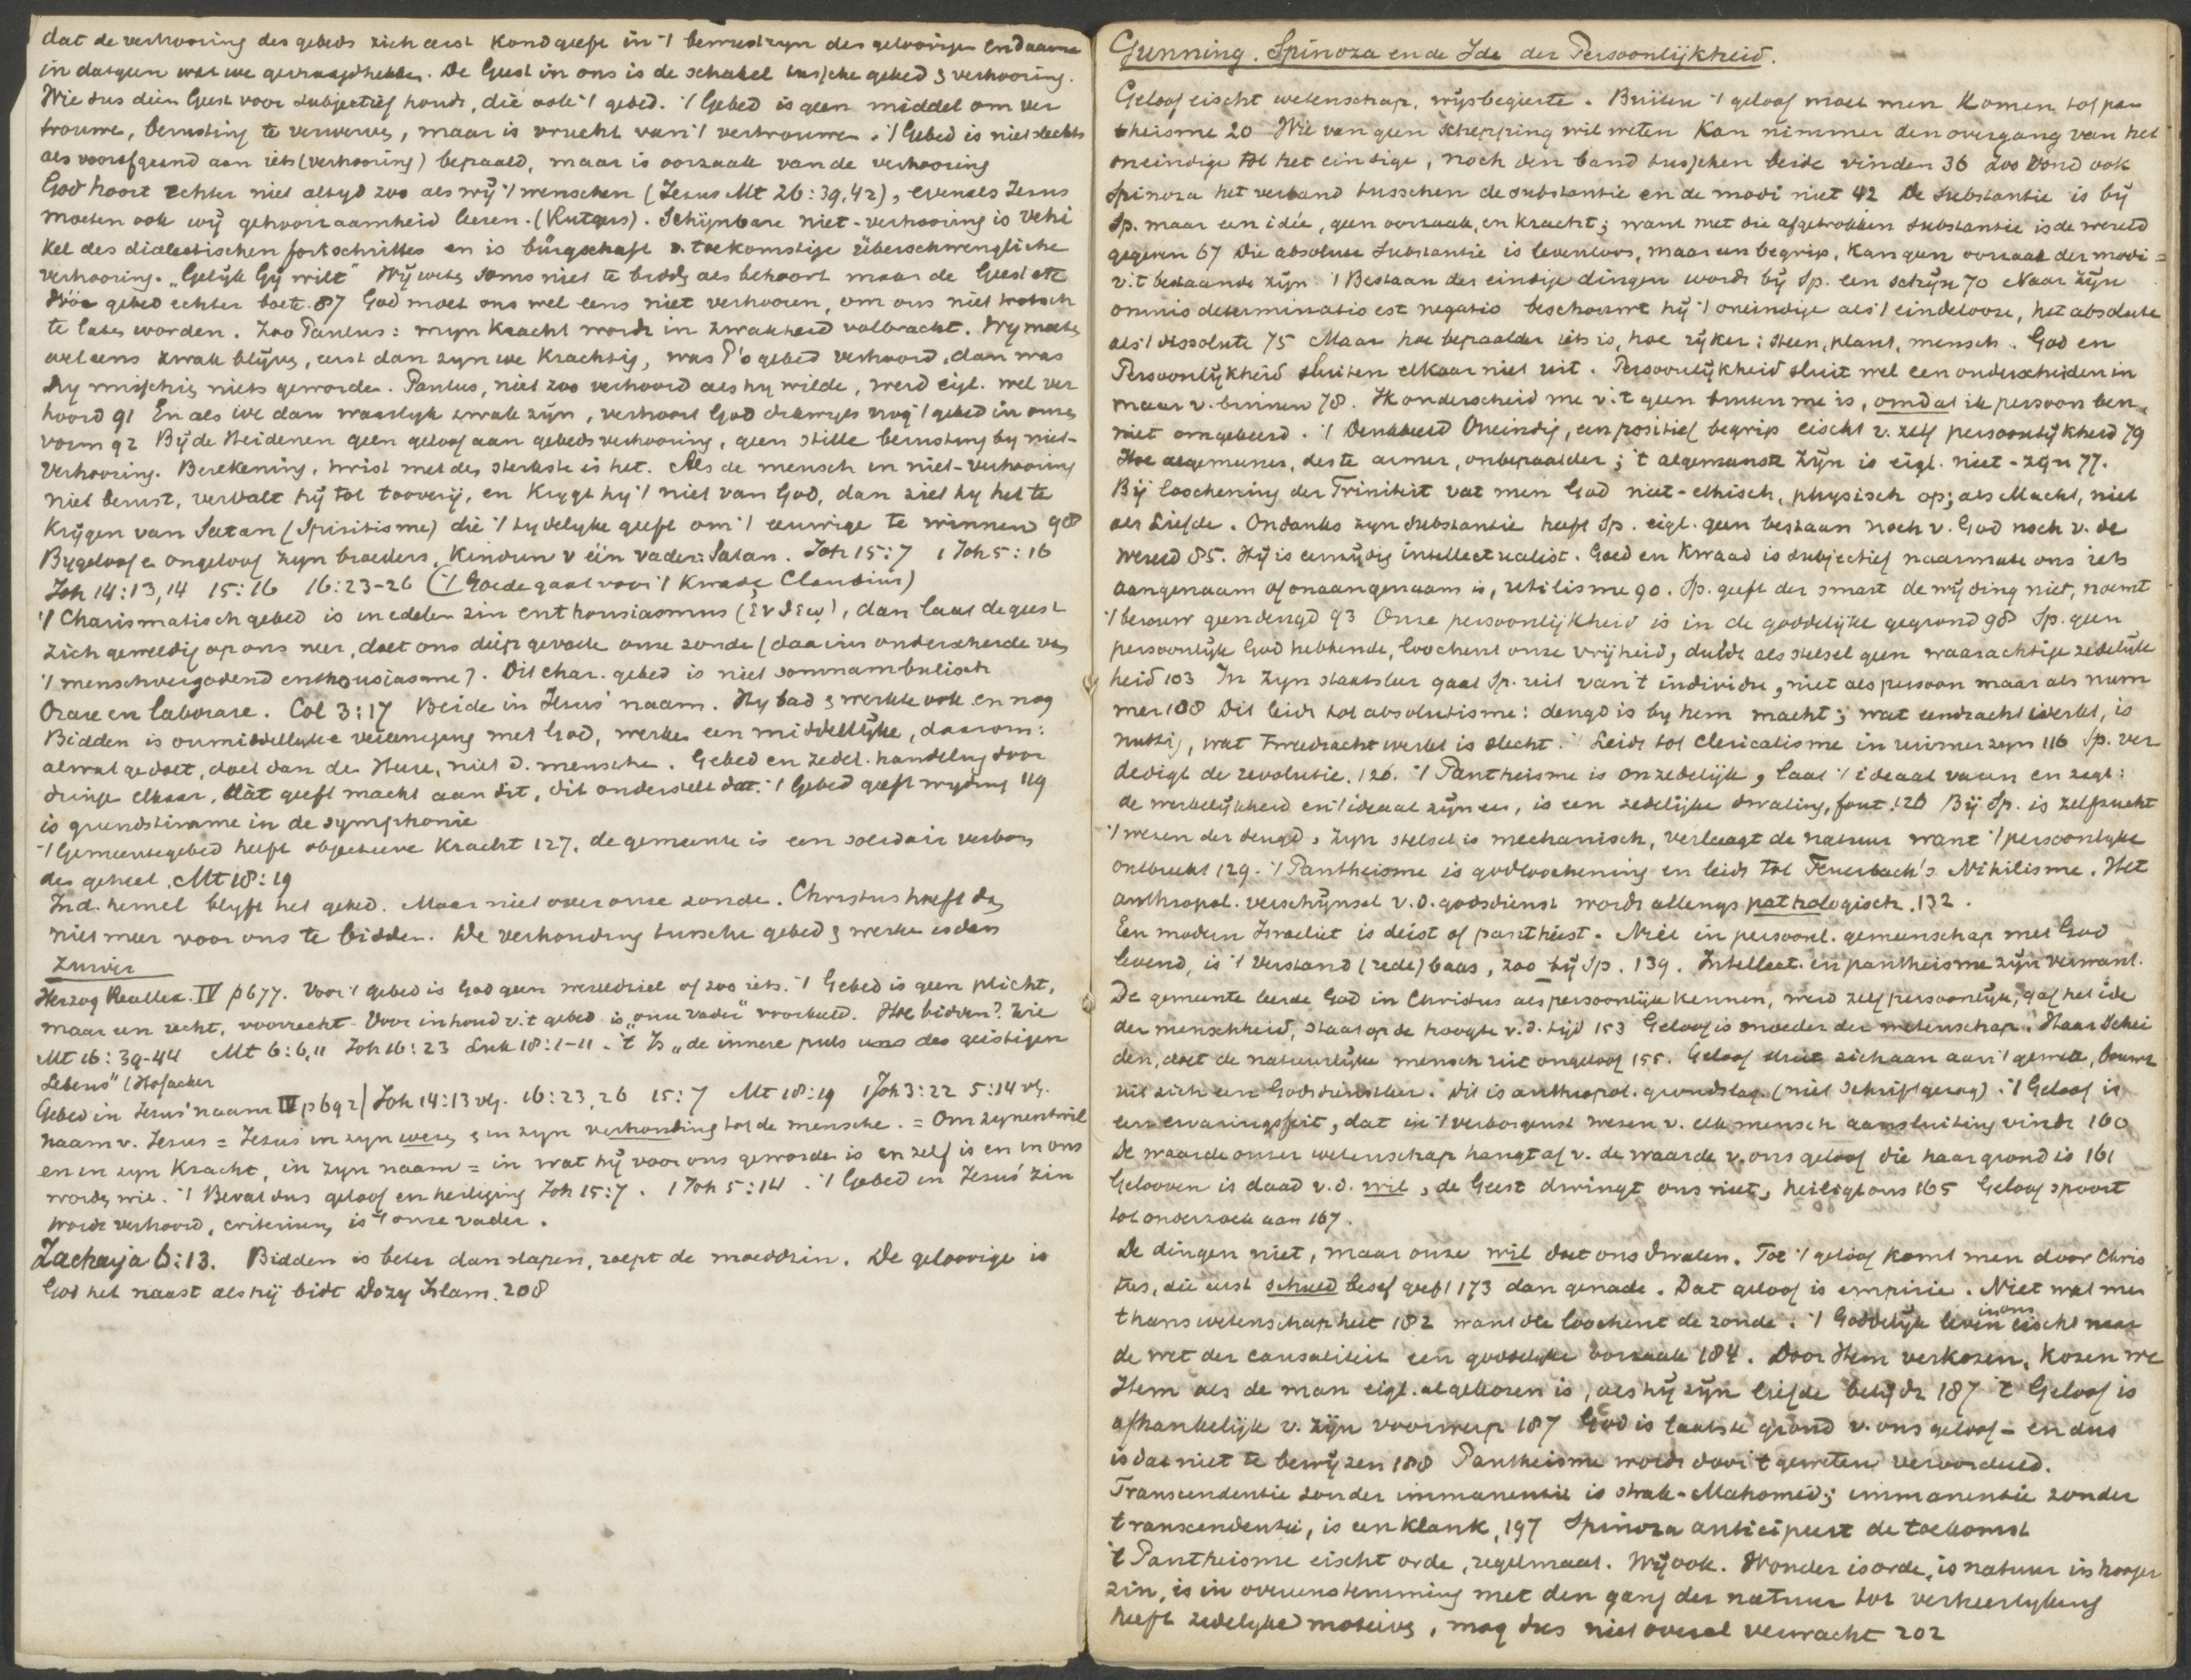 dat de verhooring des gebeds zich eerst kond geeft in 't bewustzyn des geloovigen en daarna
in datgeen wat we gevraagd hebben. De Geest in ons is de schakel tusschen gebed & verhooring.
Wie dus dien Geest voor subjectief houdt, die ook 't gebed. 't Gebed is geen middel om ver
trouwen, berusting te verwerven, maar is vrucht van 't vertrouwen. 't Gebed is niet slechts
als voorafgaand aan iets (verhooring) bepaald, maar is oorzaak van de verhooring
God hoort echter niet altyd zoo als wij 't wenschen (Jezus Mt 26:39,42), evenals Jezus
moeten ook wij gehoorzaamheid leeren. (Rutgers). Schijnbare niet-verhooring is vehi
kel des dialectischen fortschrittes en is bürgschaft v. toekomstige überschwengliche
verhooring. „Gelijk Gij wilt" Wij weten soms niet te bidden als behoort maar de Geest etc
gebed echter 87 God moet ons wel eens niet verhooren, om ons niet trotsch
te laten worden. Zoo Paulus: myn kracht wordt in zwakheid volbracht. Wy moeten
wel eens zwak blijven, eerst dan zyn we krachtig, was P's gebed verhoord, dan was
hy misschien niets geworden. Paulus, niet zoo verhoord als hy wilde, werd eigl. wel ver
hoord 91 En als we dan waarlyk zwak zijn, verhoort God dikwyls nog 't gebed in onze
vorm 92 Bij de Heidenen geen geloof aan gebedsverhooring, geen stille berusting by niet-
verhooring. Berekening, twist met den sterkste is het. Als de mensch in niet-verhooring
niet berust, vervalt hij tot tooverij, en krygt hij 't niet van God, dan ziet hy het te
krijgen van Satan (Spiritisme) die 't tydelyke geeft om 't eeuwige te winnen 98
Bygeloof en ongeloof zyn broeders, kinderen v één vader: Satan. Joh 15:7 1 Joh 5:16
Joh 14:13,14 15:16 16:23-26 ('t Goede gaat voor 't kwade, Claudius)
't Charismatisch gebed is in edelen zin enthousiasmus (ἐν θεῳ), dan laat de geest
zich geweldig op ons neer, doet ons diep gevoelen onze zonde (daarin onderscheiden van
't menschvergodend enthousiasme). Dit char. gebed is niet somnambulisch
Orare en laborare. Col 3:17 Beide in Jezus' naam. Hy bad & werkte ook en nog
Bidden is onmiddellyke vereeniging met God, werken een middellijke, daarom:
alwat ge doet, doet dan den Heere, niet d. menschen. Gebed en zedel. handeling door
dringen elkaar, dàt geeft macht aan dit, dit onderstelt dat. 't Gebed geeft wyding 119
is grundstimme in de symphonie
't Gemeentegebed heeft objectieve kracht 127. de gemeente is een solidair verbon
den geheel. Mt 18:19
In d. hemel blyft het gebed. Maar niet over onze zonde. Christus hoeft dan
niet meer voor ons te bidden. De verhouding tusschen gebed & werken is dan
zuiver
Herzog Reallex. IV p 677. Voor 't gebed is God geen wereldziel of zoo iets. 't Gebed is geen plicht,
maar een recht, voorrecht. Voor inhoud v. 't gebed is „onze vader" voorbeeld. Hoe bidden? Zie
Mt 16:39-44 Mt 6:6,11 Joh 16:23 Luk 18:1-11. 't Is „de innere puls des geistigen
Lebens" (Hofacker
Gebed in Jezus' naam IV p 692) Joh 14:13 vlg. 16:23,26 15:7 Mt 18:19 1 Joh 3:22 5:14 vlg.
naam v. Jezus = Jezus in zyn wezen & in zyn verhouding tot de menschen. = Om zynentwil
en in zyn kracht, in zyn naam = in wat hij voor ons geworden is en zelf is en in ons
worden wil. 't Bevat dus geloof en heiliging Joh 15:7. 1 Joh 5:14. 't Gebed in Jezus' zin
wordt verhoord, criterium is 't onze vader.
Zacharja 6:13. Bidden is beter dan slapen, roept de moeddzin. De geloovige is
God het naast als hij bidt Dozy Islam. 208
Gunning. Spinoza en de Idee der Persoonlijkheid.
Geloof eischt wetenschap, wijsbegeerte. Buiten 't geloof moet men komen tot pan
theisme 20 Wie van geen schepping wil weten kan nimmer den overgang van het
oneindige tot het eindige, noch den band tusschen beide vinden 36 Zoo vond ook
Spinoza het verband tusschen de substantie en de modi niet 42 De substantie is bij
Sp. maar een idée, geen oorzaak, en kracht; want met die afgetrokken substantie is de wereld
gegeven 67 Die absolute substantie is levenloos, maar een begrip, kan geen oorzaak der modi =
v. 't bestaande zijn. 't Bestaan der eindige dingen wordt bij Sp. een schijn 70 Naar zijn
omnis determinatio est negatio beschouwt hij 't oneindige als 't eindelooze, het absolute
als 't dissolute 75 Maar hoe bepaalder iets is, hoe rijker: steen, plant, mensch. God en
Persoonlijkheid sluiten elkaar niet uit. Persoonlijkheid sluit wel een onderscheiden in
maar v. binnen 78. Ik onderscheid me v. 't geen buiten me is, omdat ik persoon ben,
niet omgekeerd. 't Denkbeeld Oneindig, een positief begrip eischt v. zelf persoonlijkheid 79
Hoe algemeener, des te armer, onbepaalder; 't algemeenste zijn is eigl. niet-zijn 77.
Bij loochening der Triniteit vat men God niet-ethisch, physisch op; als Macht, niet
als Liefde. Ondanks zyn substantie heeft Sp. eigl. geen bestaan noch v. God noch v. de
wereld 85. Hij is eenzijdig intellectualist. Goed en kwaad is subjectief naarmate ons iets
aangenaam of onaangenaam is, utilisme 90. Sp. geeft der smart de wijding niet, noemt
't berouw geen deugd 93 Onze persoonlijkheid is in de goddelijke gegrond 98 Sp. geen
persoonlijke God hebbende, loochent onze vrijheid, duldt als stelsel geen waarachtige zedelijk
heid 103 In zyn staatsleer gaat Sp. uit van 't individu, niet als persoon maar als num
mer 108 Dit leidt tot absolutisme: deugd is by hem macht; wat eendracht werkt, is
nuttig, wat tweedracht werkt is slecht. Leidt tot Clericalisme in ruimer zyn 116 Sp. ver
dedigt de revolutie. 126. 't Pantheisme is onzedelijk, laat 't ideaal varen en zegt:
de werkelijkheid en 't ideaal zijn een, is een zedelijke dwaling, fout. 128 Bij Sp. is zelfzucht
't wezen der deugd, zyn stelsel is mechanisch, verlaagt de natuur want 't persoonlyke
ontbreekt 129. 't Pantheisme is godloochening en leidt tot Feuerbach's Nihilisme. Het
anthropol. verschijnsel v.d. godsdienst wordt allengs pathologisch. 132.
Een modern Israeliet is deist of pantheist. Niet in persoonl. gemeenschap met God
levend, is 't verstand (rede) baas, zoo bij Sp. 139. Intellect. en pantheisme zijn verwant.
De gemeente leerde God in Christus als persoonlijk kennen, werd zelf persoonlijk, gaf het idee
der menschheid, staat op de hoogte v. d. tijd 153 Geloof is moeder der wetenschap. Haar schei
den, doet de natuurlijke mensch uit ongeloof 155. Geloof sluit zich aan aan 't geweten, bouwt
uit zich een Godsdienstleer. Dit is anthropol. grondslag (niet Schriftgezag). 't Geloof is
een ervaringsfeit, dat in 't verborgenst wezen v. elk mensch aansluiting vindt 160
De waarde onzer wetenschap hangt af v. de waarde v. ons geloof die haar grond is 161
Gelooven is daad v. d. wil, de Geest dwingt ons niet, heiligt ons 165 Geloof spoort
tot onderzoek aan 167.
De dingen niet, maar onze wil doet ons dwalen. Tot 't geloof komt men door Chris
tus, die eerst schuldbesef geeft 173 dan genade. Dat geloof is empirie. Niet wat men
thans wetenschap heet 182 want die loochent de zonde. 't Goddelijk leven in ons eischt naar
de wet der causaliteit een goddelijke oorzaak 184. Door Hem verkozen, kozen we
Hem als de man eigl. al gekozen is, als hij zijn liefde belijdt 187 't Geloof is
afhankelijk v. zijn voorwerp 187 God is laatste grond v. ons geloof - en dus
is dat niet te bewijzen 188 Pantheisme wordt door 't geweten veroordeeld.
Transcendentie zonder immanentie is strak-Mahomed; immanentie zonder
transcendentie, is een klank, 197 Spinoza anticipeert de toekomst
't Pantheisme eischt orde, regelmaat. Wij ook. Wonder is orde, is natuur in hooger
zin, is in overeenstemming met den gang der natuur tot verheerlyking
heeft zedelyke motieven, mag dus niet overal verwacht 202